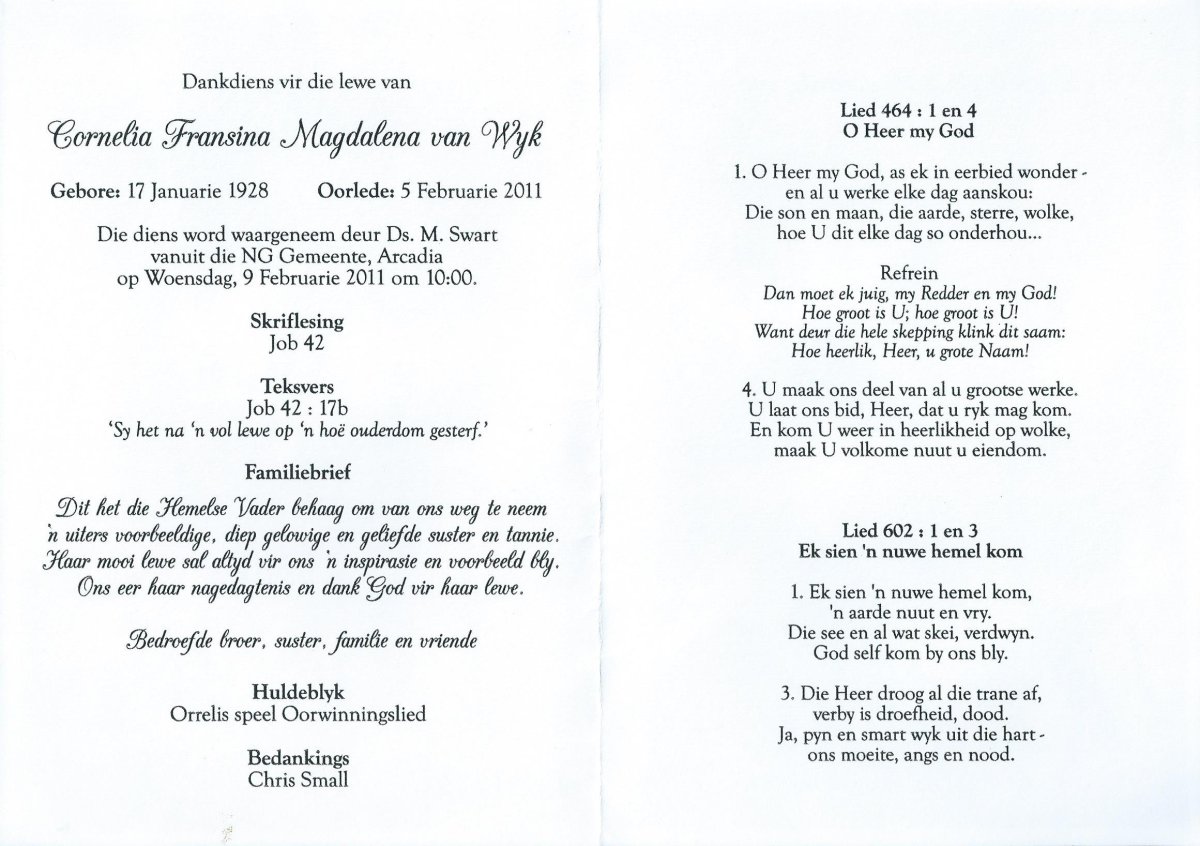 Dankdiens vir die lewe van
Cornelia Fransina Magdalena van Wyk
Gebore: 17 Januarie 1928 Oorlede: 5 Februarie 2011
Die diens word waargeneem deur Ds. M. Swart
vanuit die NG Gemeente, Arcadia
op Woensdag, 9 Februarie 2011 om 10:00.
Skriflesing
Job 42
Teksvers
Job 42 : 17b
‘Sy het na ‘n vol lewe op ‘n hoë ouderdom gesterf.’
Familiebrief
Dit het die Hemelse Vader behaag om van ons weg te neem
'n uiters voorbeeldige, diep gelowige en geliefde suster en tannie.
Haar mooi lewe sal altyd vir ons 'n inspirasie en voorbeeld bly.
Ons eer haar nagedagtenis en dank God vir haar lewe.
Bedroefde broer, suster, familie en vriende
Huldeblyk
Orrelis speel Oorwinningslied
Bedankings
Chris Small
Lied 464 : 1 en 4
O Heer my God
1. O Heer my God, as ek in eerbied wonder -
en al u werke elke dag aanskou:
Die son en maan, die aarde, sterre, wolke,
hoe U dit elke dag so onderhou...
Refrein
Dan moet ek juig, my Redder en my God!
Hoe groot is U; hoe groot is U!
Want deur die hele skepping klink dit saam:
Hoe heerlik, Heer, u grote Naam!
4. U maak ons deel van al u grootse werke.
U laat ons bid, Heer, dat u ryk mag kom.
En kom U weer in heerlikheid op wolke,
maak U volkome nuut u eiendom.
Lied 602 : 1 en 3
Ek sien 'n nuwe hemel kom
1. Ek sien 'n nuwe hemel kom,
'n aarde nuut en vry.
Die see en al wat skei, verdwyn.
God self kom by ons bly.
3. Die Heer droog al die trane af,
verby is droefheid, dood.
Ja, pyn en smart wyk uit die hart -
ons moeite, angs en nood.